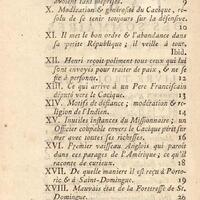 avoient tant méprisés. 9
X. Modération & générosité du Cacique, résolu de se tenir toujours sur la défensive.
10
XI. Il met le bon ordre & l'abondance dans
sa petite République ; il veille à tout.
Ibid.
XII. Henri reçoit poliment tous ceux qui lui
sont envoyés pour traiter de paix, & ne se
fie à personne. 12
XIII. Ce qui arrive à un Pere Franciscain
député vers le Cacique. 13
XIV. Motifs de défiance, modération & religion de l'Indien. 14
XV. Inutiles instances du Missionnaire ; un
Officier coupable envers le Cacique périt sur
mer avec toutes ses richesses. 16
XVI. Premier vaisseau Anglois qui paroît
dans ces parages de l'Amérique ; ce qu'il
raconte de curieux. 18
XVII. De quelle maniere il est reçu à Portoric & à Saint-Domingue. 19
XVIII. Mauvais état de la Forteresse de St.
Domingue. 20